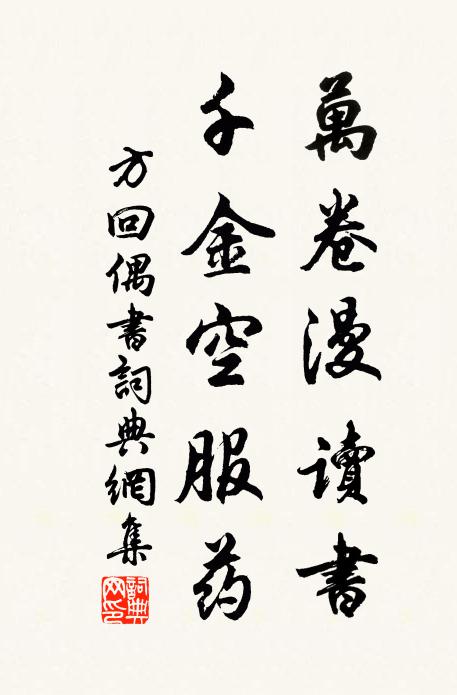 萬卷漫讀書
千金空服药
方回偶書詞典網集
詞典网印